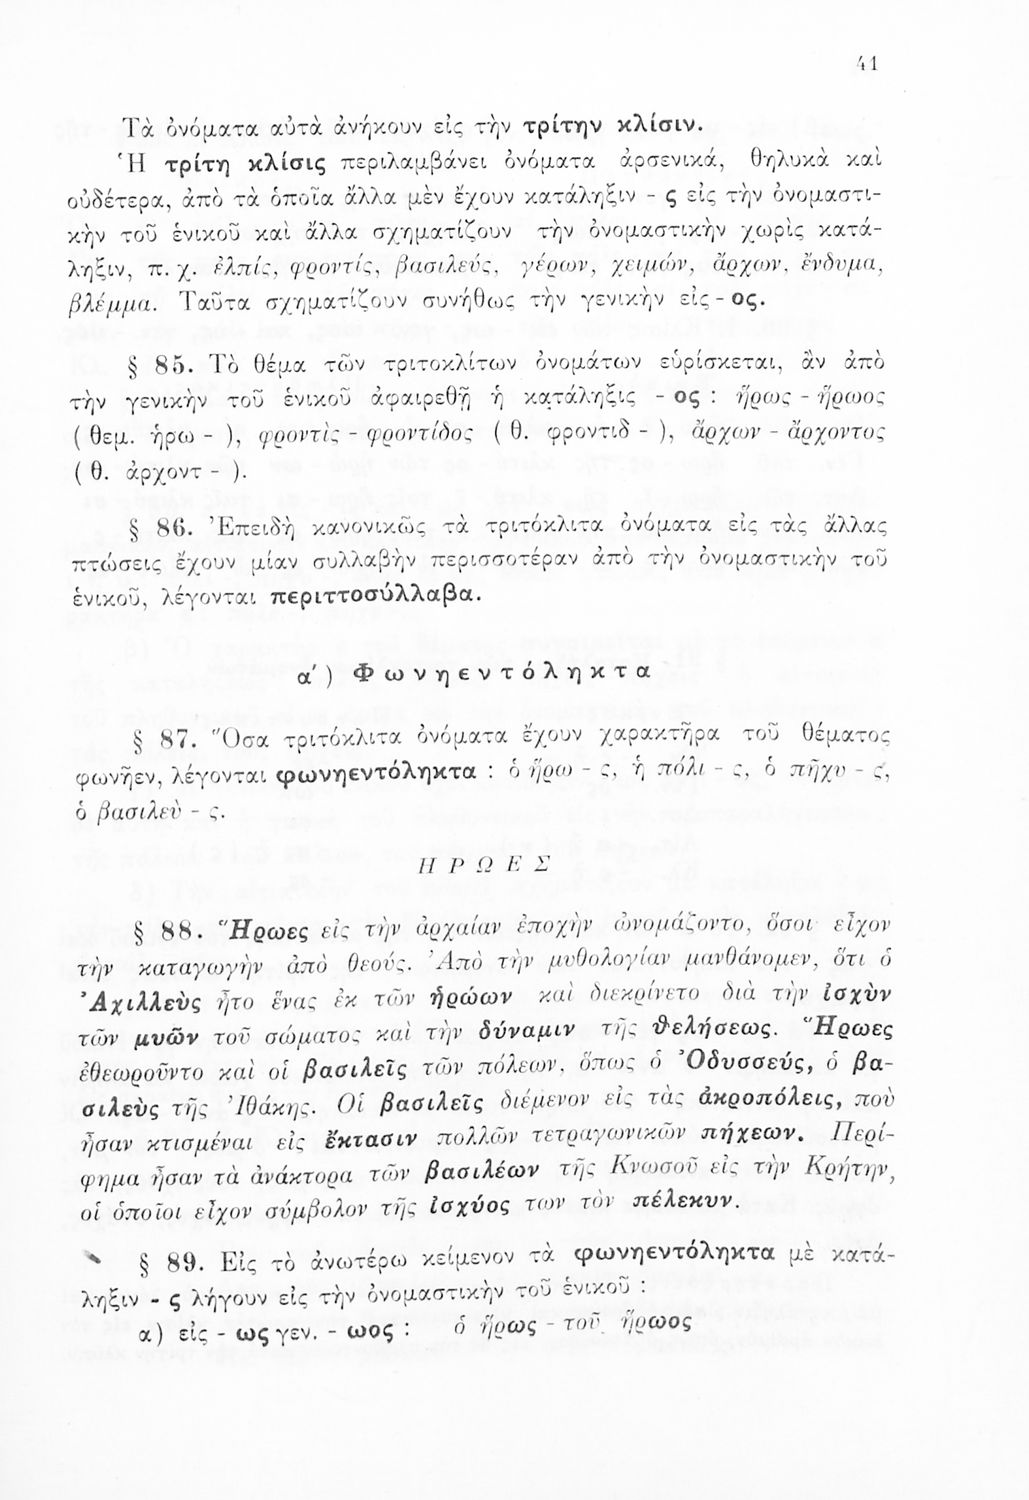 41
Τὰ ὀνόματα αὐτὰ ἀνήκουν εἰς τὴν τρίτην κλίσιν.
Ἡ τρίτη κλίσις περιλαμβάνει ὀνόματα ἀρσενικά, θηλυκὰ καὶ
οὐδέτερα, ἀπὸ τὰ ὁποῖα ἄλλα μὲν ἔχουν κατάληξιν - ς εἰς τὴν ὀνομαστι-
κὴν τοῦ ἑνικοῦ καὶ ἄλλα σχηματίζουν τὴν ὀνομαστικὴν χωρὶς κατά-
ληξιν, π. χ. ἐλπίς, φροντίς, βασιλεύς, γέρων, χειμών, ἄρχων, ἔνδυμα,
βλέμμα. Ταῦτα σχηματίζουν συνήθως τὴν γενικὴν εἰς - ος.
§ 85. Τὸ θέμα τῶν τριτοκλίτων ὀνομάτων εὑρίσκεται, ἂν ἀπὸ
τὴν γενικὴν τοῦ ἑνικοῦ ἀφαιρεθῇ ἡ κατάληξις - ος : ἥρως - ἥρωος
( θεμ. ἡρω - ), φροντὶς - φροντίδος ( θ. φροντιδ - ), ἄρχων - ἄρχοντος
( θ. ἀρχοντ - ).
§ 86. Ἐπειδὴ κανονικῶς τὰ τριτόκλιτα ὀνόματα εἰς τὰς ἄλλας
πτώσεις ἔχουν μίαν συλλαβὴν περισσοτέραν ἀπὸ τὴν ὀνομαστικὴν τοῦ
ἑνικοῦ, λέγονται περιττοσύλλαβα.
α΄) Φωνηεντόληκτα
§ 87. Ὅσα τριτόκλιτα ὀνόματα ἔχουν χαρακτῆρα τοῦ θέματος
φωνῆεν, λέγονται φωνηεντόληκτα : ὁ ἥρω - ς, ἡ πόλι - ς, ὁ πῆχυ - ς,
ὁ βασιλεὺ - ς.
ΗΡΩΕΣ
§ 88. Ἥρωες εἰς τὴν ἀρχαίαν ἐποχὴν ὠνομάζοντο, ὅσοι εἶχον
τὴν καταγωγὴν ἀπὸ θεούς. Ἀπὸ τὴν μυθολογίαν μανθάνομεν, ὅτι ὁ
Ἀχιλλεὺς ἦτο ἕνας ἐκ τῶν ἡρώων καὶ διεκρίνετο διὰ τὴν ἰσχὺν
τῶν μυῶν τοῦ σώματος καὶ τὴν δύναμιν τῆς θελήσεως. Ἥρωες
ἐθεωροῦντο καὶ οἱ βασιλεῖς τῶν πόλεων, ὅπως ὁ Ὀδυσσεύς, ὁ βα-
σιλεὺς τῆς Ἰθάκης. Οἱ βασιλεῖς διέμενον εἰς τὰς ἀκροπόλεις, ποὺ
ἦσαν κτισμέναι εἰς ἔκτασιν πολλῶν τετραγωνικῶν πήχεων. Περί-
φημα ἦσαν τὰ ἀνάκτορα τῶν βασιλέων τῆς Κνωσοῦ εἰς τὴν Κρήτην,
οἱ ὁποῖοι εἶχον σύμβολον τῆς ἰσχύος των τὸν πέλεκυν.
§ 89. Εἰς τὸ ἀνωτέρω κείμενον τὰ φωνηεντόληκτα μὲ κατά-
ληξιν - ς λήγουν εἰς τὴν ὀνομαστικὴν τοῦ ἑνικοῦ :
α) εἰς - ως γεν. - ωος : ὁ ἥρως - τοῦ ἥρωος